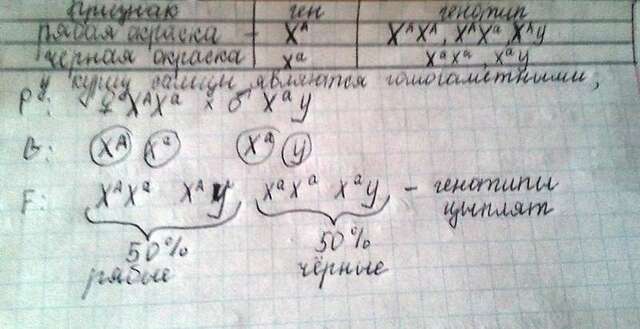 Признак ген генотип
рябая окраска - X^A X^A X^A, X^A X^a, X^A y
чёрная окраска X^a X^a X^a, X^a y
у куриц самцы являются гомогаметными,
P: ♀ X^A X^a x ♂ X^a y
G: X^A X^a X^a y
F: X^A X^a X^A y X^a X^a X^a y - генотипы
цыплят
50% 50%
рябые чёрные